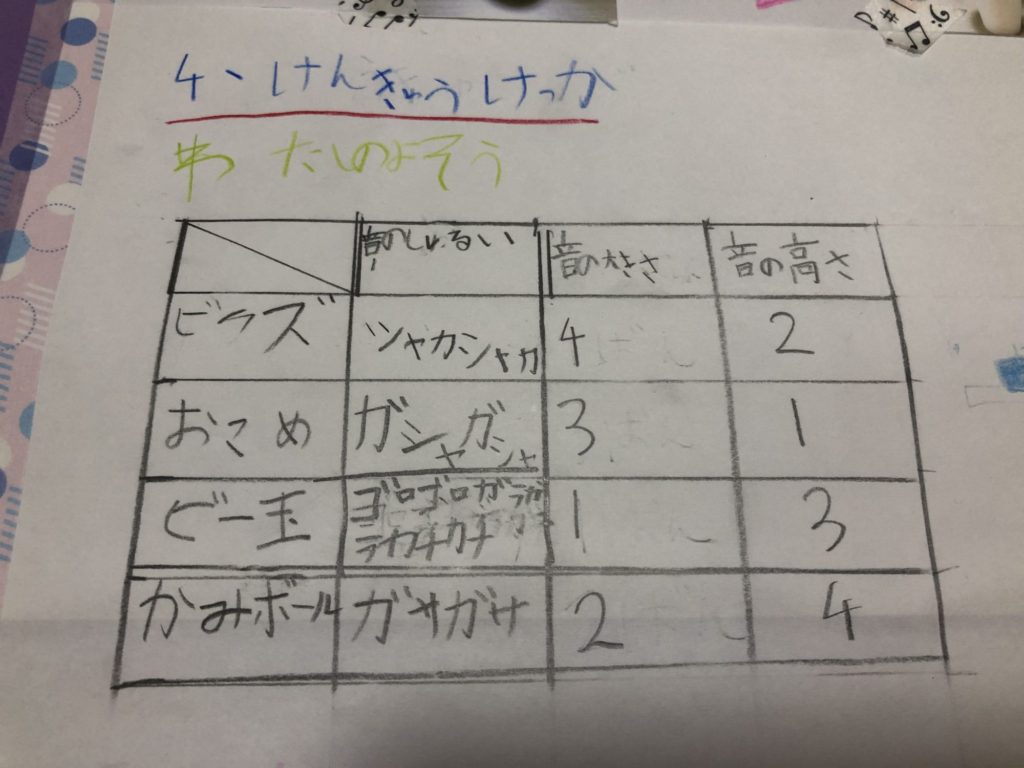 4、けんきゅうけっか
わたしのよそう
音のしゅるい 音の大きさ 音の高さ
ビーズ シャカシャカ 4 2
おこめ ガシャガシャ 3 1
ビー玉 ゴロゴロガラガ
ラカチカチ 1 3
かみボール ガサガサ 2 4